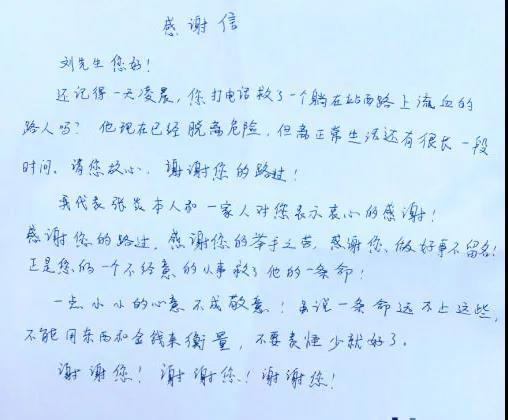 感谢信
刘先生您好！
还记得一天凌晨，您打电话救了一个躺在站西路上流血的
路人吗？他现在已经脱离危险，但离正常生活还有很长一段
时间。请您放心，谢谢您的路过！
我代表张炎本人和一家人对您表示衷心的感谢！
感谢您的路过，感谢您的举手之劳，感谢您做好事不留名！
正是您的一个不经意的小事救了他的一条命！
一点小小的心意不成敬意！虽说一条命远不止这些，
不能用东西和金钱来衡量，不要责怪少就好了。
谢谢您！谢谢您！谢谢您！